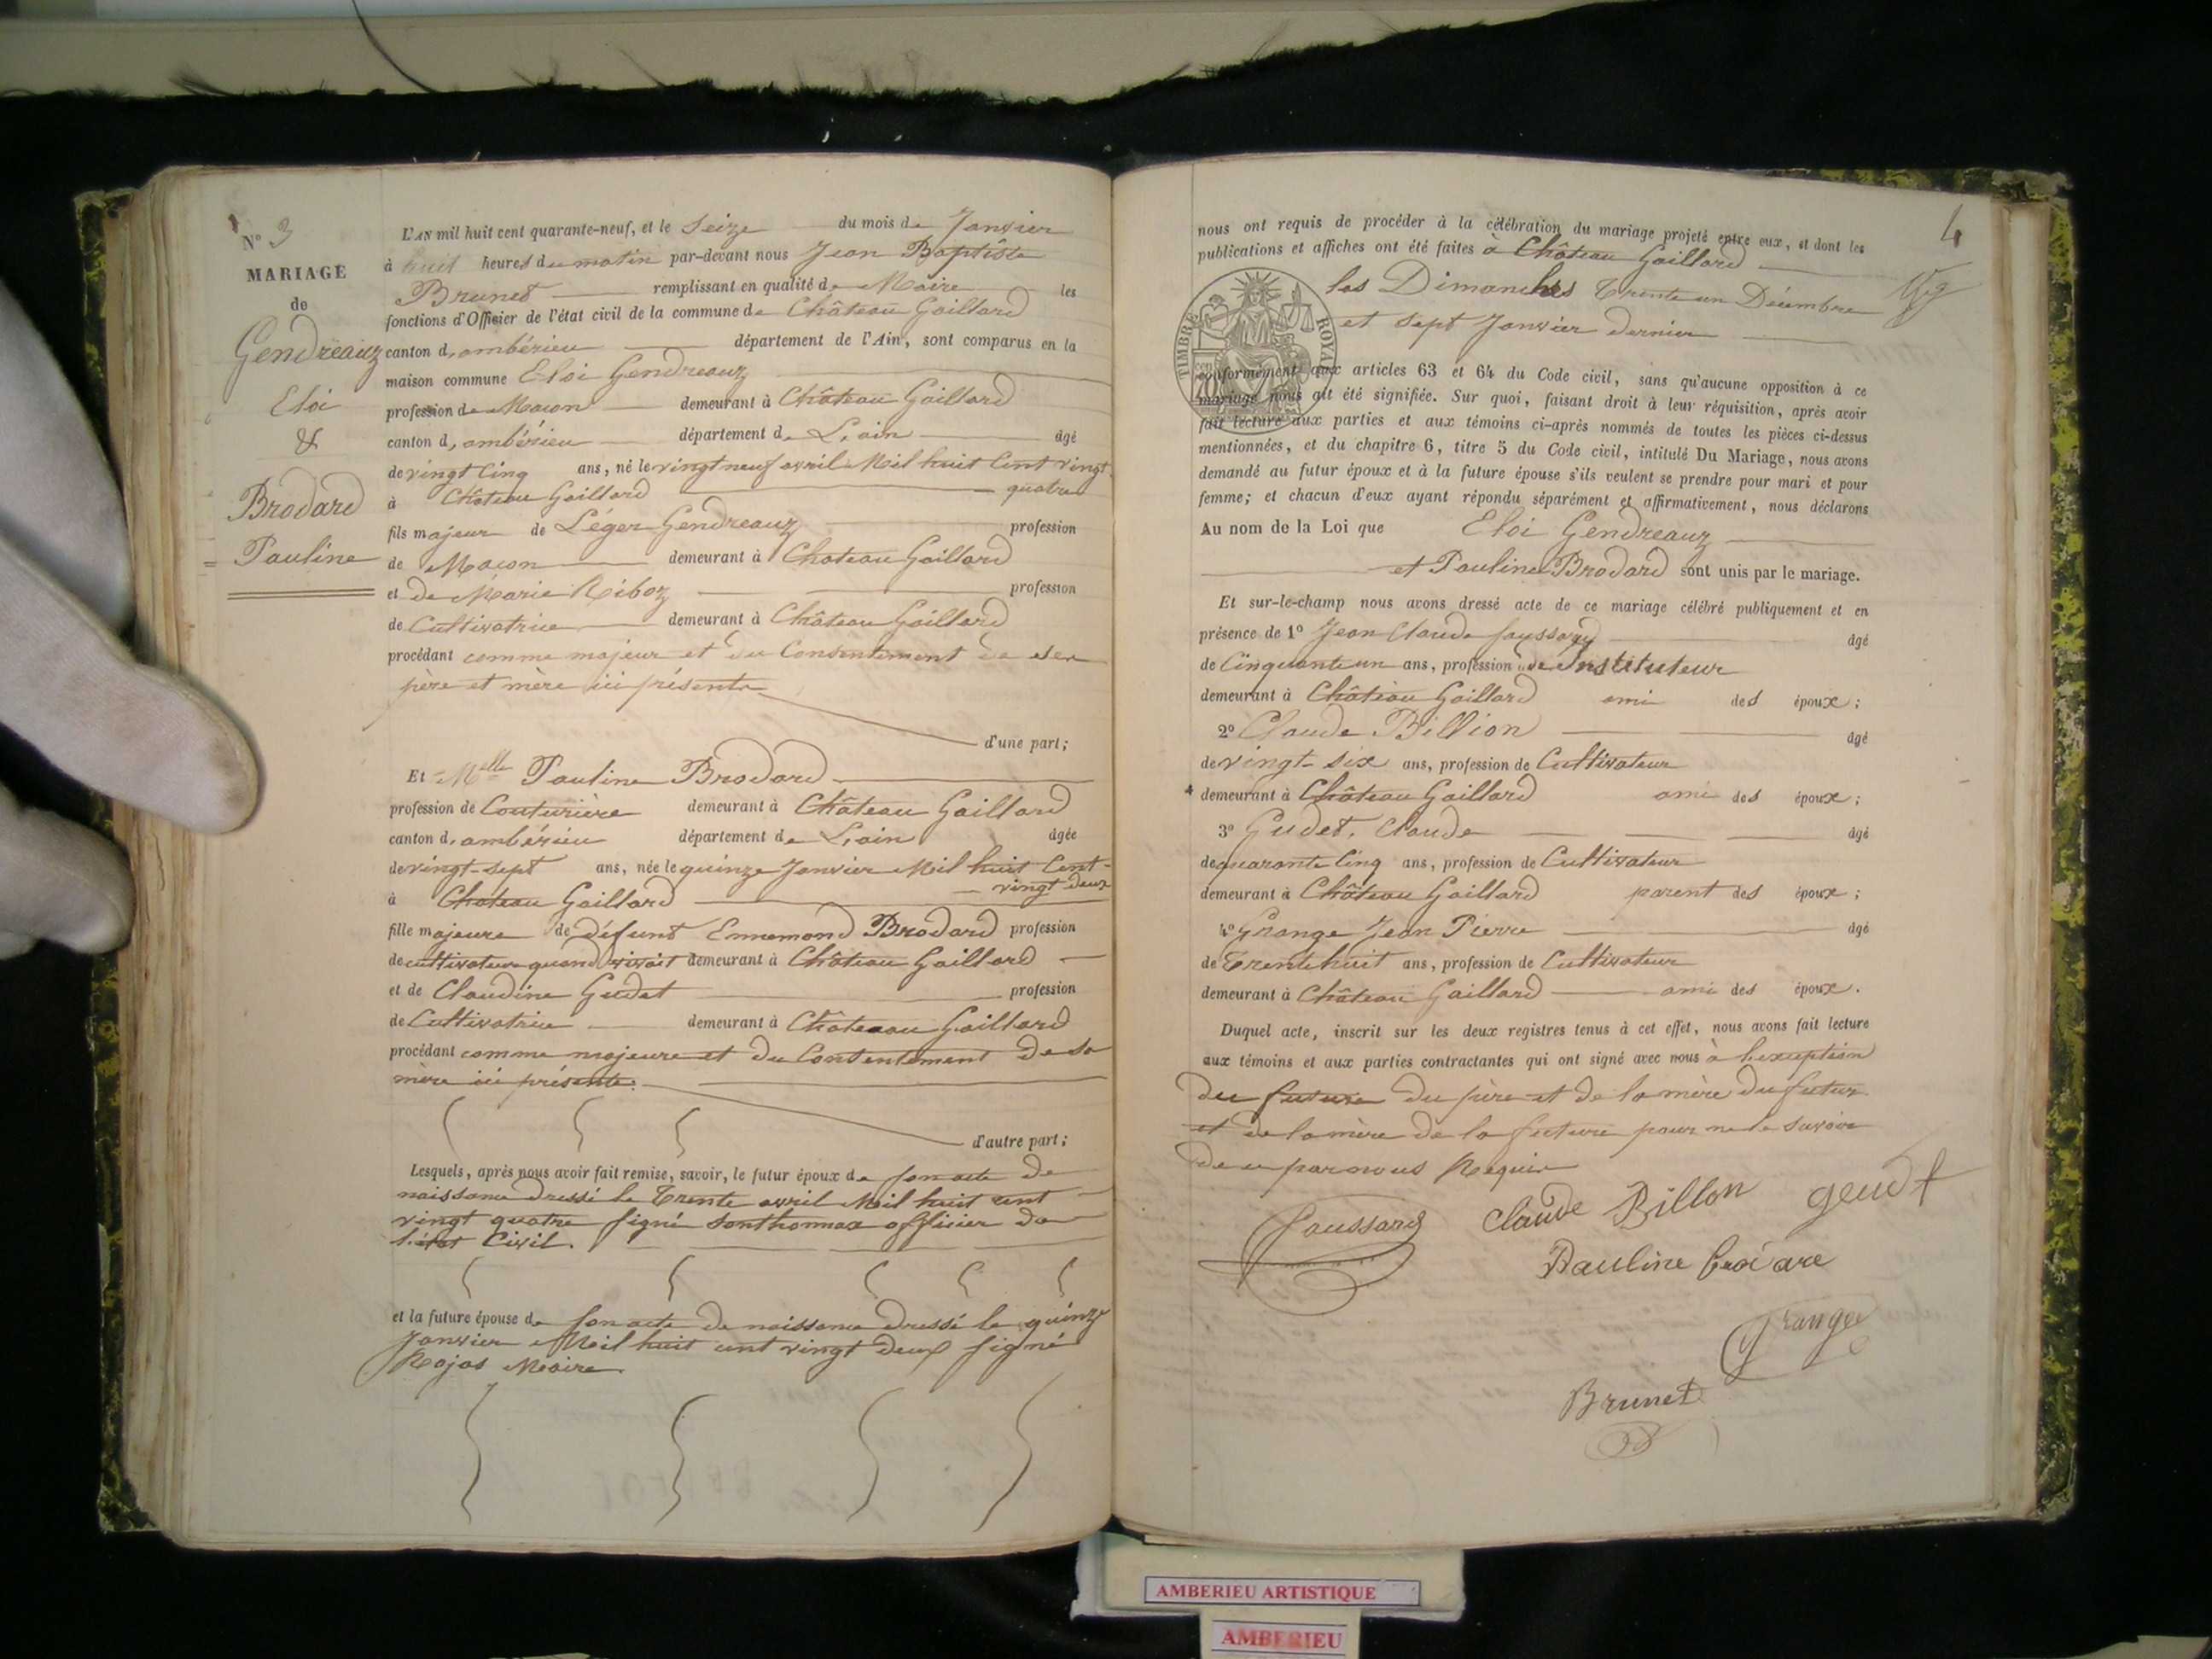 N° 3
MARIAGE
de
Gendreauz
Eloi
&
Brodard
Pauline
L'AN mil huit cent quarante-neuf, et le Seize du mois de Janvier
à huit heures du matin par-devant nous Jean Baptiste
Brunet remplissant en qualité de Maire les
fonctions d'Officier de l'état civil de la commune de Château Gaillard
canton d'ambérieu département de l'Ain, sont comparus en la
maison commune Eloi Gendreauz
profession de Maçon demeurant à Château Gaillard
canton d'ambérieu département de L'ain âgé
de vingt Cinq ans, né le vingt neuf avril Mil huit Cent vingt
à Château Gaillard quatre
fils majeur de Léger Gendreauz profession
de Maçon demeurant à Chateau Gaillard
et de Marie Riboz profession
de Cultivatrice demeurant à Château Gaillard
procédant comme majeur et du Consentement de ses
père et mère ici présents
d'une part;
Et Melle Pauline Brodard
profession de Couturière demeurant à Château Gaillard
canton d'ambérieu département de L'ain âgée
de vingt-sept ans, née le quinze Janvier Mil huit Cent
vingt deux
à Chateau Gaillard
fille majeure de défunt Ennemond Brodard profession
de cultivateur quand vivait demeurant à Château Gaillard
et de Claudine Gudet profession
de Cultivatrice demeurant à Châteaau Gaillard
procédant comme majeure et du Consentement de sa
mère ici présente.
d'autre part;
Lesquels, après nous avoir fait remise, savoir, le futur époux de son acte de
naissance dressé le Trente avril Mil huit cent
vingt quatre signé Sonthonnax officier de
l'état Civil.
et la future épouse de son acte de naissance dressé le quinze
Janvier Mil huit cent vingt deux signé
Rojas Maire.
4
nous ont requis de procéder à la célébration du mariage projeté entre eux, et dont les
publications et affiches ont été faites à Château Gaillard
les Dimanches Trente un Décembre
et Sept Janvier dernier
TIMBRE ROYAL
conformément aux articles 63 et 64 du Code civil, sans qu'aucune opposition à ce
mariage nous ait été signifiée. Sur quoi, faisant droit à leur réquisition, après avoir
fait lecture aux parties et aux témoins ci-après nommés de toutes les pièces ci-dessus
mentionnées, et du chapitre 6, titre 5 du Code civil, intitulé Du Mariage, nous avons
demandé au futur époux et à la future épouse s'ils veulent se prendre pour mari et pour
femme; et chacun d'eux ayant répondu séparément et affirmativement, nous déclarons
Au nom de la Loi que Eloi Gendreauz
et Pauline Brodard sont unis par le mariage.
Et sur-le-champ nous avons dressé acte de ce mariage célébré publiquement et en
présence de 1° Jean Claude âgé
de Cinquante un ans, profession de Instituteur
demeurant à Château Gaillard ami des époux;
2° Claude Billion âgé
de vingt-six ans, profession de Cultivateur
demeurant à Château Gaillard ami des époux;
3° Gudet, Claude âgé
de quarante Cinq ans, profession de Cultivateur
demeurant à Château Gaillard parent des époux;
4° Grange Jean Pierre âgé
de Trente huit ans, profession de Cultivateur
demeurant à Château Gaillard ami des époux.
Duquel acte, inscrit sur les deux registres tenus à cet effet, nous avons fait lecture
aux témoins et aux parties contractantes qui ont signé avec nous à L'exception
du future du père et de la mère du futur
et de la mère de la future pour ne le savoir
de ce par nous Requis
Claude Billon
Pauline
Grange
Brunet
AMBERIEU ARTISTIQUE
AMBERIEU